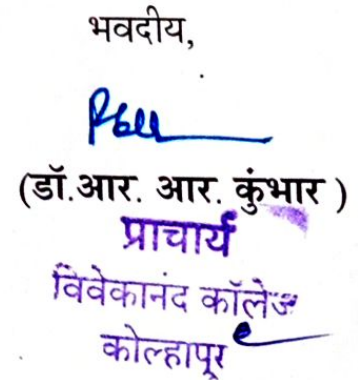 भवदीय,
(डॉ.आर. आर. कुंभार )
प्राचार्य
विवेकानंद कॉलेज
कोल्हापूर